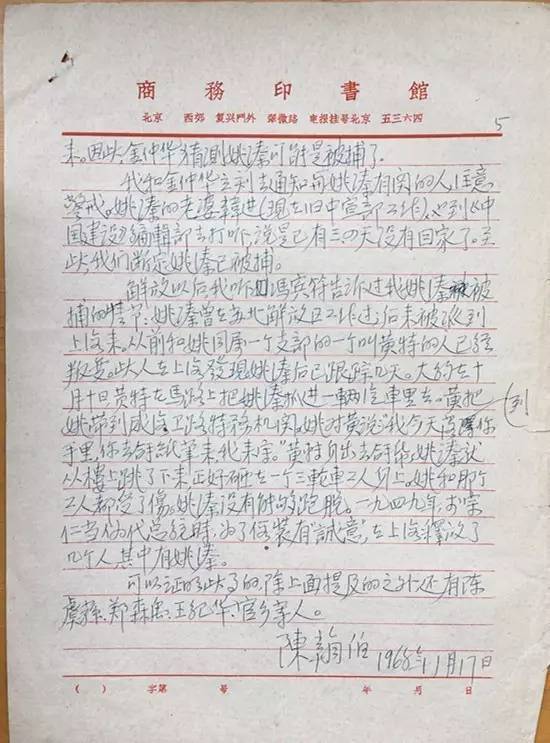 商務印書館
北京 西郊 复兴門外 翠微路 电报挂号北京 五三六四
5
来。因此金仲华猜測姚溱可能是被捕了。
我和金仲华立刻去通知和姚溱有関的人注意
警戒。姚溱的老婆韓进(現在旧中宣部工作)也到《中
国建設》編輯部去打听,說是已有三四天没有回家了。至
此我們断定姚溱已被捕。
解放以后我听馮賓符告訴过我姚溱被
捕的情节:姚溱曾在苏北解放区工作过,后来被派到
上海来。从前和姚同属一个支部的一个叫黄特的人已經
叛变。此人在上海发現姚溱后已跟踪几天。大約在十
月十日黄特在馬路上把姚溱抓进一輛汽車里去。黄把
姚带到威海卫路特务机関。姚对黄說"我今天落在你
手里,你去拿紙笔来我来写。"黄特身出去拿紙,姚溱就
从樓上跳了下来正好砸在一个三輪車工人身上。姚和那个
工人都受了傷。姚溱没有能够跑脫。一九四九年,李宗
仁当伪代总統時,为了假裝有"誠意",在上海釋放了
几个人其中有姚溱。
可以証明此事的,除上面提及的之外还有陈
虞孫、郑森禹、王紀华、官乡等人。
陳翰伯 1968年11月17日
到
( ) 字第 号 年 月 日